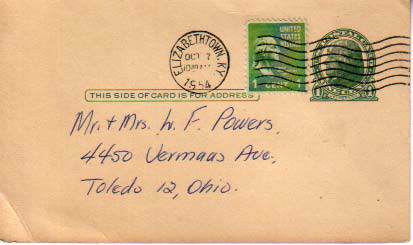 ELIZABETHTOWN, KY.
OCT 7
1954
UNITED
STATES
1 CENT
THIS SIDE OF CARD IS FOR ADDRESS
Mr. + Mrs. W. F. Powers,
4450 Vermaas Ave,
Toledo 12, Ohio.